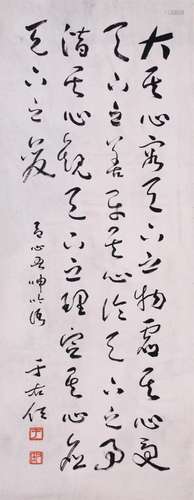 大其心容天下之物虚其心受
天下之善平其心论天下之事
潜其心观天下之理定其心应
天下之变
吕心吾呻吟语
于右任